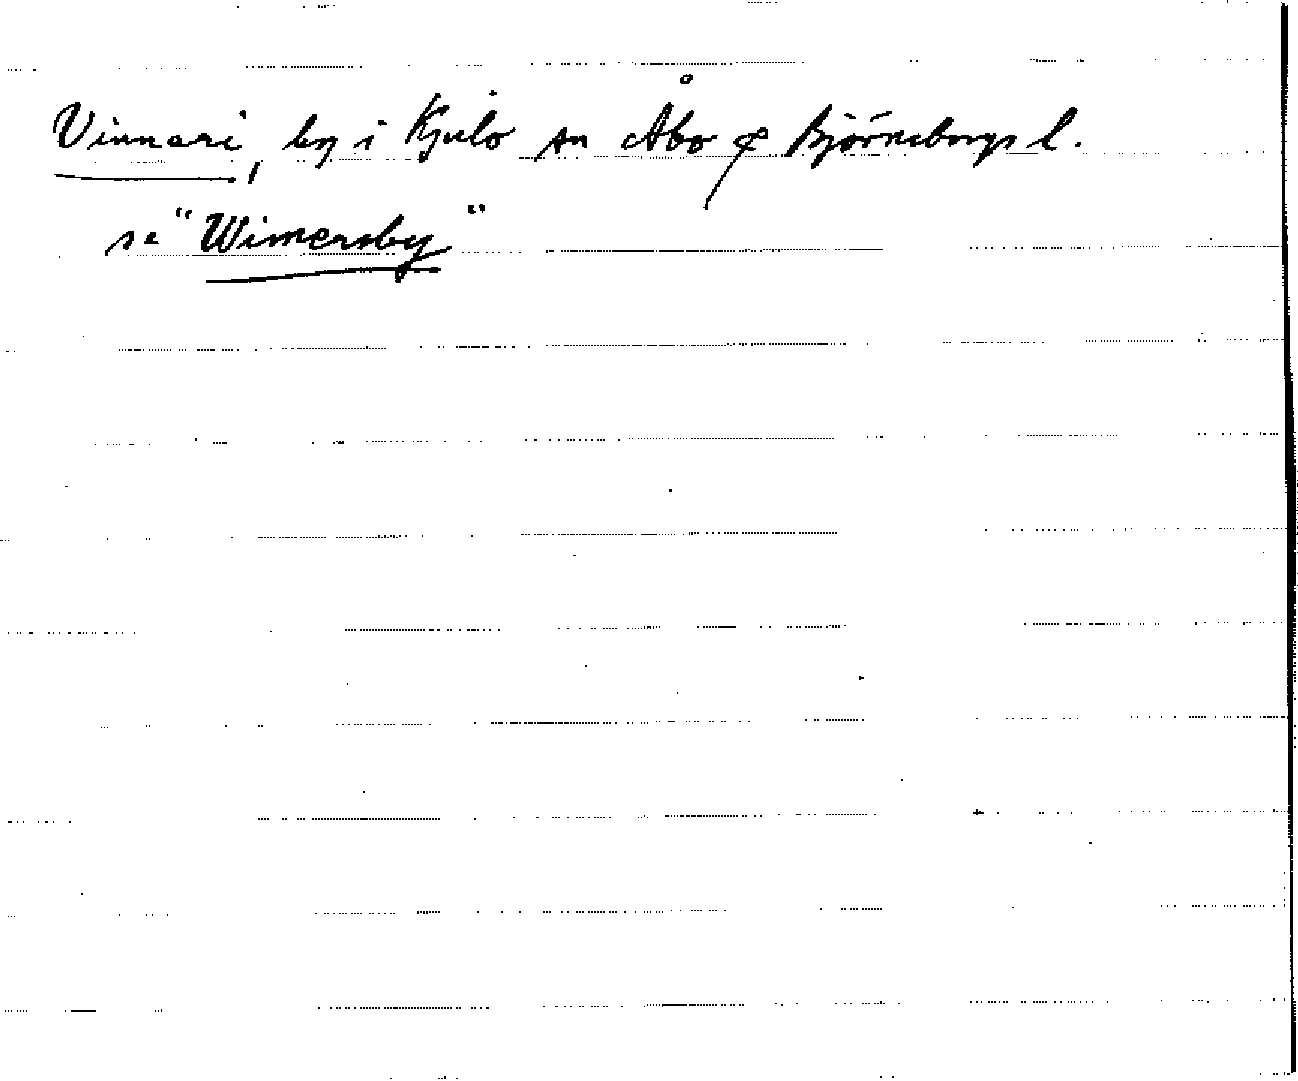 Vinnari, by i Kjulo sn Åbo & Björneborgs l.
se "Wimersby"